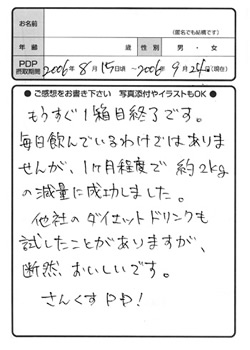 お名前
(匿名でも結構です)
年 齢 歳 性別 男 ・ 女
PDP 摂取期間 2006年 8月 15日頃 〜 2006年 9月 24日(現在)
● ご感想をお書き下さい 写真添付やイラストもOK ●
もうすぐ1箱目終了です。
毎日飲んでいるわけではありま
せんが、1ヶ月程度で 約2kg
の減量に成功しました。
他社のダイエットドリンクも
試したことがありますが、
断然、おいしいです。
さんくすPD!